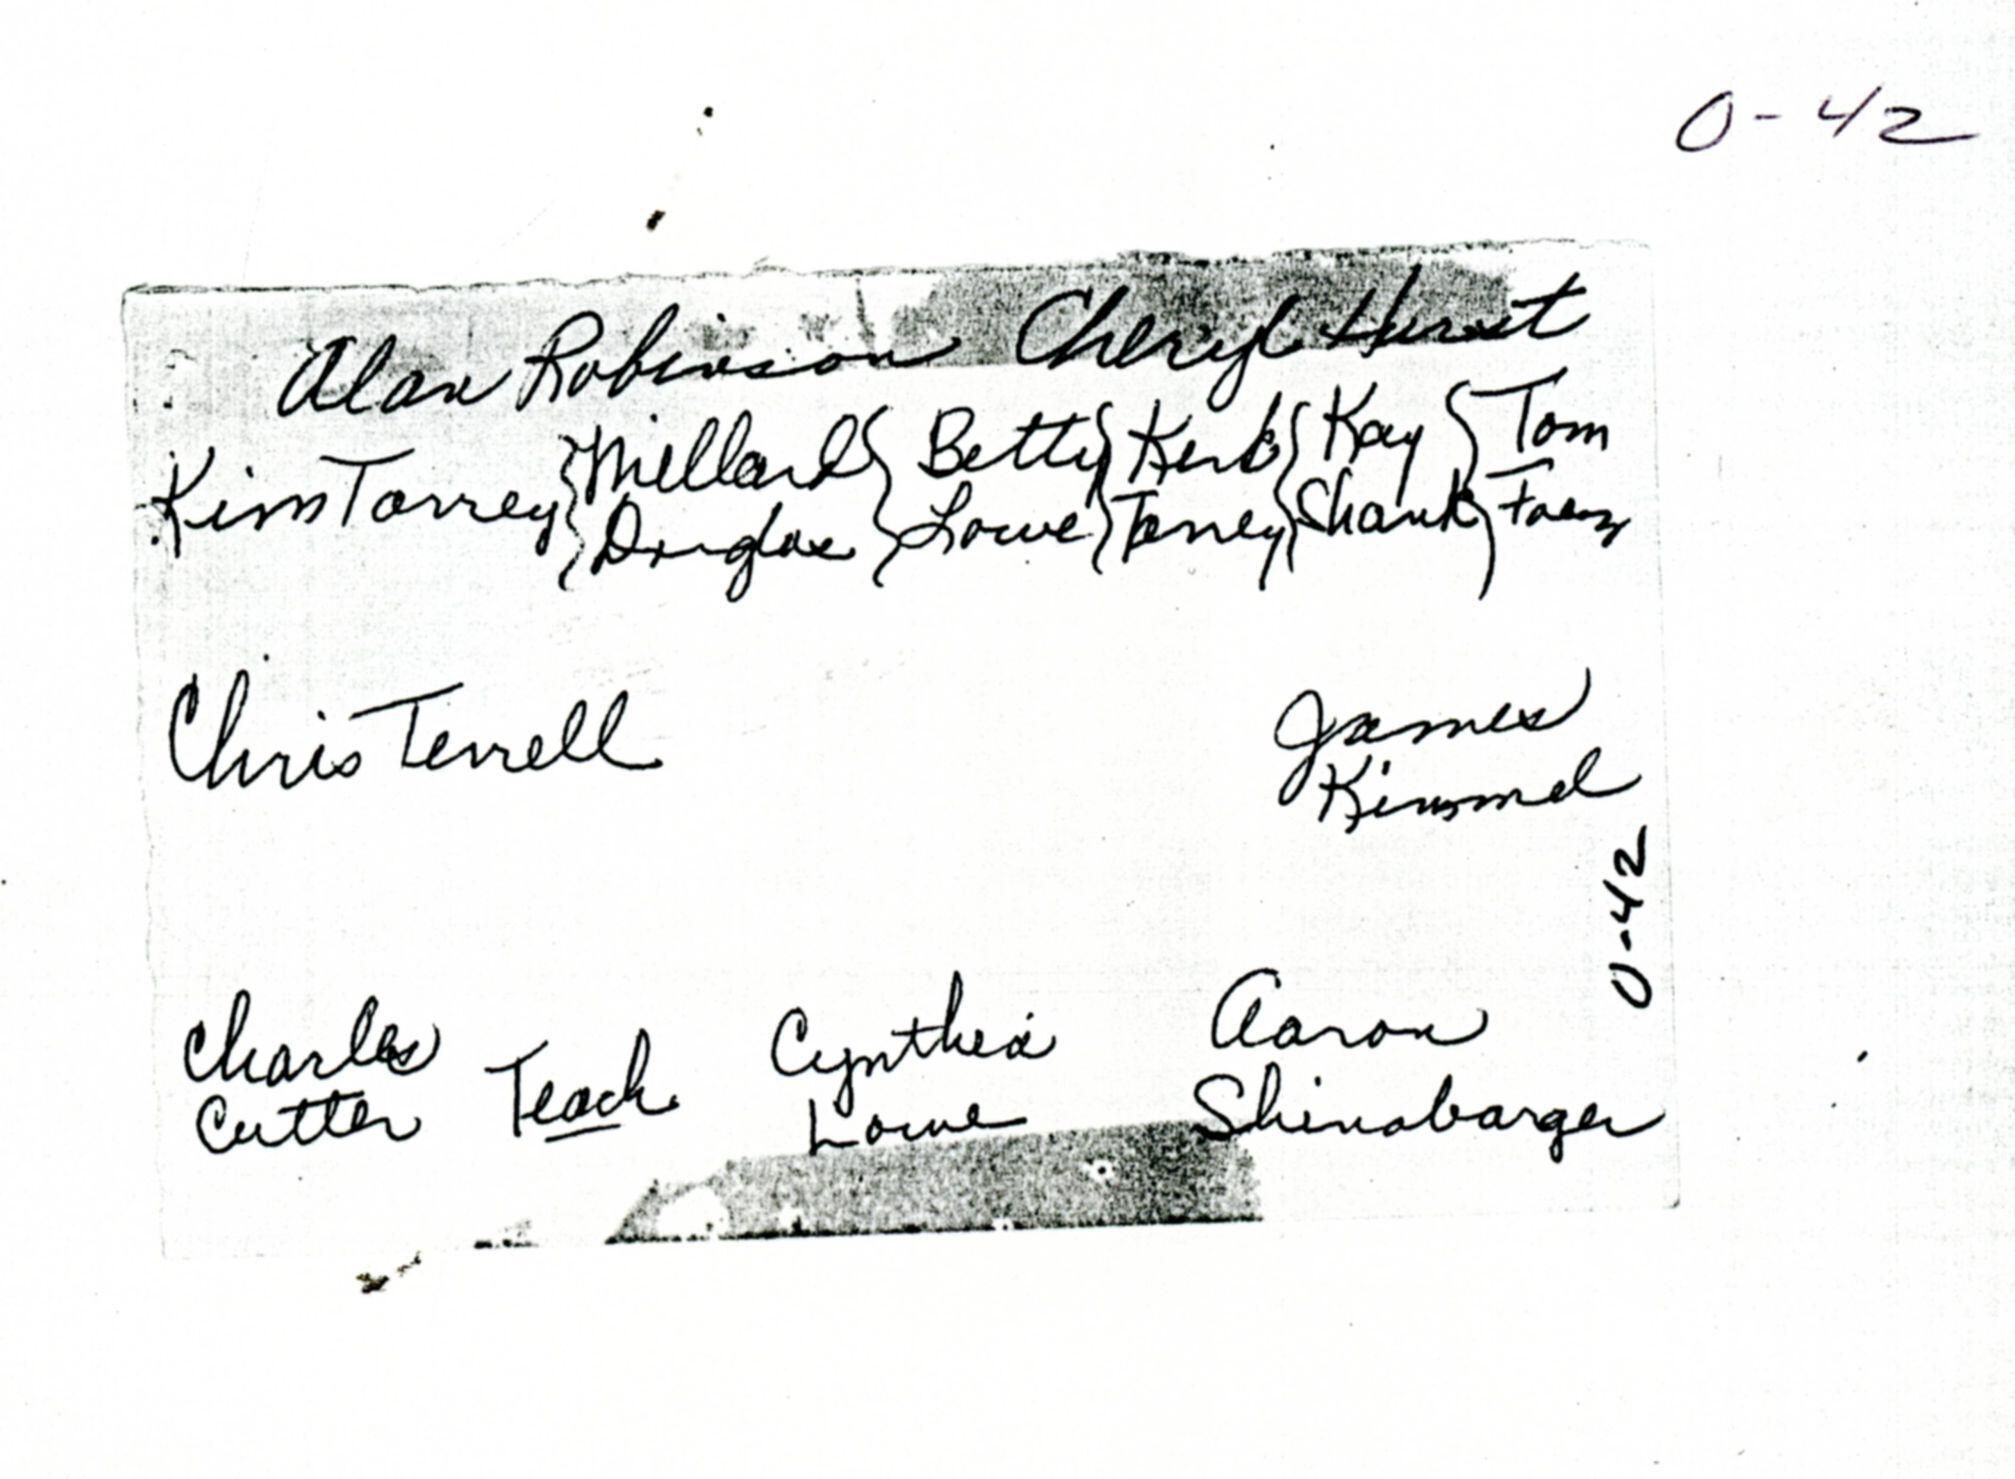 O-42
Alan Robinson Cheryl Hurst
Kim Torrey { Millard { Betty { Kerb { Kay { Tom
Douglas { Lowe { Toney { Shank {
Chris Terrell
James
Kimmel
O-42
Charles Teach Cynthia Aaron
Cutter Lowe Shinabarger